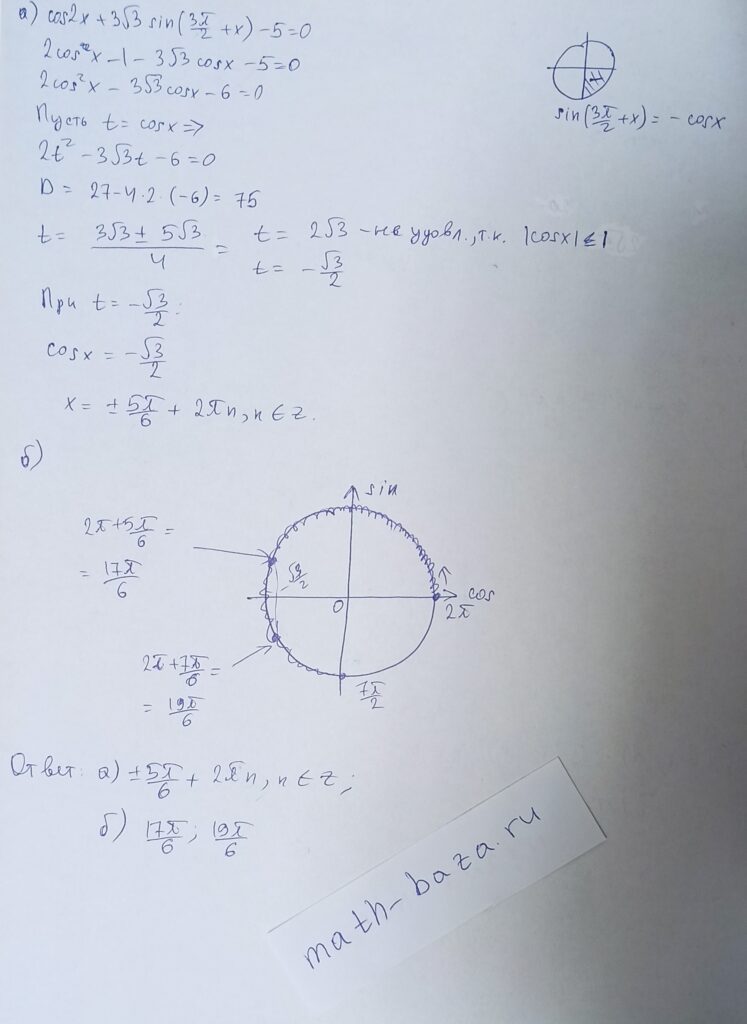 а) cos2x + 3√3 sin(3π/2 + x) - 5 = 0
2cos²x - 1 - 3√3 cosx - 5 = 0
2cos²x - 3√3 cosx - 6 = 0
sin(3π/2 + x) = - cosx
Пусть t = cosx =>
2t² - 3√3t - 6 = 0
D = 27 - 4·2·(-6) = 75
t = (3√3 ± 5√3)/4 = t = 2√3 - не удовл., т.к. |cosx| ≤ 1
t = -√3/2
При t = -√3/2:
cosx = -√3/2
x = ± 5π/6 + 2πn, n ∈ z.
б)
sin
2π + 5π/6 =
= 17π/6
-√3/2
0
cos
2π
2π + 7π/6 =
= 19π/6
7π/2
Ответ: а) ± 5π/6 + 2πn, n ∈ z;
б) 17π/6; 19π/6
math-baza.ru